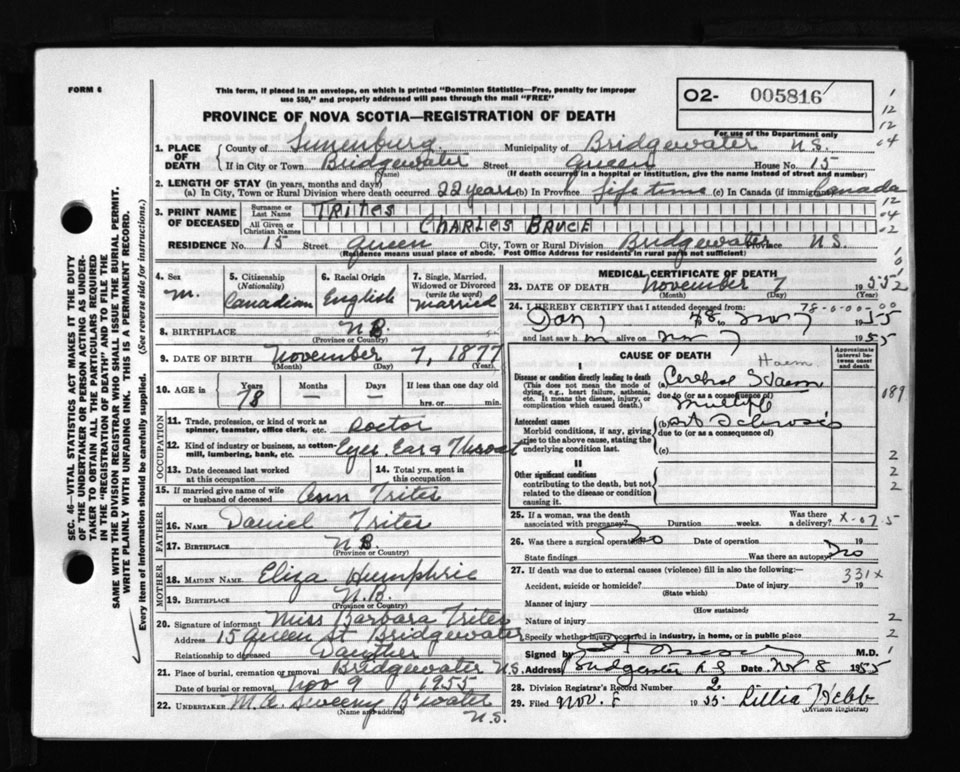 FORM 6
This form, if placed in an envelope, on which is printed "Dominion Statistics—Free, penalty for improper
use $50," and properly addressed will pass through the mail "FREE"
O2- 005816
For use of the Department only
PROVINCE OF NOVA SCOTIA—REGISTRATION OF DEATH
1. PLACE OF DEATH County of Lunenburg Municipality of Bridgewater N.S.
If in City or Town Bridgewater Street Queen House No. 15
(Name) (If death occurred in a hospital or institution, give the name instead of street and number)
2. LENGTH OF STAY (in years, months and days)
(a) In City, Town or Rural Division where death occurred 22 years (b) In Province Life time (c) In Canada (if immigrant) Canada
3. PRINT NAME OF DECEASED Surname or Last Name TRITES
All Given or Christian Names CHARLES BRUCE
RESIDENCE No. 15 Street Queen City, Town or Rural Division Bridgewater Province N.S.
(Residence means usual place of abode. Post Office Address for residents in rural parts not sufficient)
4. Sex M.
5. Citizenship (Nationality) Canadian
6. Racial Origin English
7. Single, Married, Widowed or Divorced (write the word) Married
8. BIRTHPLACE N.B.
(Province or Country)
9. DATE OF BIRTH November 7, 1877
(Month) (Day) (Year)
10. AGE in Years 78 Months — Days — If less than one day old
hrs. or min.
OCCUPATION
11. Trade, profession, or kind of work as spinner, teamster, office clerk, etc. Doctor
12. Kind of industry or business, as cotton-mill, lumbering, bank, etc. Eyes. Ear & Throat
13. Date deceased last worked at this occupation
14. Total yrs. spent in this occupation
15. If married give name of wife or husband of deceased Ann Trites
FATHER
16. NAME Daniel Trites
17. BIRTHPLACE N.B.
(Province or Country)
MOTHER
18. MAIDEN NAME Eliza Humphrie
19. BIRTHPLACE N.B.
(Province or Country)
20. Signature of informant Miss Barbara Trites
Address 15 Queen St Bridgewater
Relationship to deceased Daughter
21. Place of burial, cremation or removal Bridgewater N.S.
Date of burial or removal Nov 9 1955
22. UNDERTAKER M.A. Sweeny B'water
(Name and address) N.S.
MEDICAL CERTIFICATE OF DEATH
23. DATE OF DEATH November 7 1955
(Month) (Day) (Year)
78-0-00-00
24. I HEREBY CERTIFY that I attended deceased from:
Jan 1 to Nov 7 1955
and last saw h m alive on Nov 7 1955
CAUSE OF DEATH
Approximate interval between onset and death
I
Disease or condition directly leading to death
(This does not mean the mode of dying, e.g., heart failure, asthenia, etc. It means the disease, injury, or complication which caused death.)
Haem
(a) Cerebral
due to (or as a consequence of)
Multiple
Antecedent causes
Morbid conditions, if any, giving rise to the above cause, stating the underlying condition last.
(b) Art Sclerosis
due to (or as a consequence of)
(c)
II
Other significant conditions contributing to the death, but not related to the disease or condition causing it.
25. If a woman, was the death associated with pregnancy? Duration weeks. Was there a delivery?
26. Was there a surgical operation? No Date of operation 19
State findings Was there an autopsy? No
27. If death was due to external causes (violence) fill in also the following:—
331X
Accident, suicide or homicide? Date of injury 19
(State which)
Manner of injury
(How sustained)
Nature of injury
Specify whether injury occurred in industry, in home, or in public place
Signed by M.D.
Address Bridgewater N.S Date Nov 8 1955
28. Division Registrar's Record Number 2
29. Filed Nov. 8 1955 Lillia Webb
(Division Registrar)
SEC. 46—VITAL STATISTICS ACT MAKES IT THE DUTY
OF THE UNDERTAKER OR PERSON ACTING AS UNDER-
TAKER TO OBTAIN ALL THE PARTICULARS REQUIRED
IN THE "REGISTRATION OF DEATH" AND TO FILE THE
SAME WITH THE DIVISION REGISTRAR WHO SHALL ISSUE THE BURIAL PERMIT.
WRITE PLAINLY WITH UNFADING INK. THIS IS A PERMANENT RECORD.
Every item of information should be carefully supplied. (See reverse side for instructions.)
12
12
04
12
04
02
189
2
2
2
2